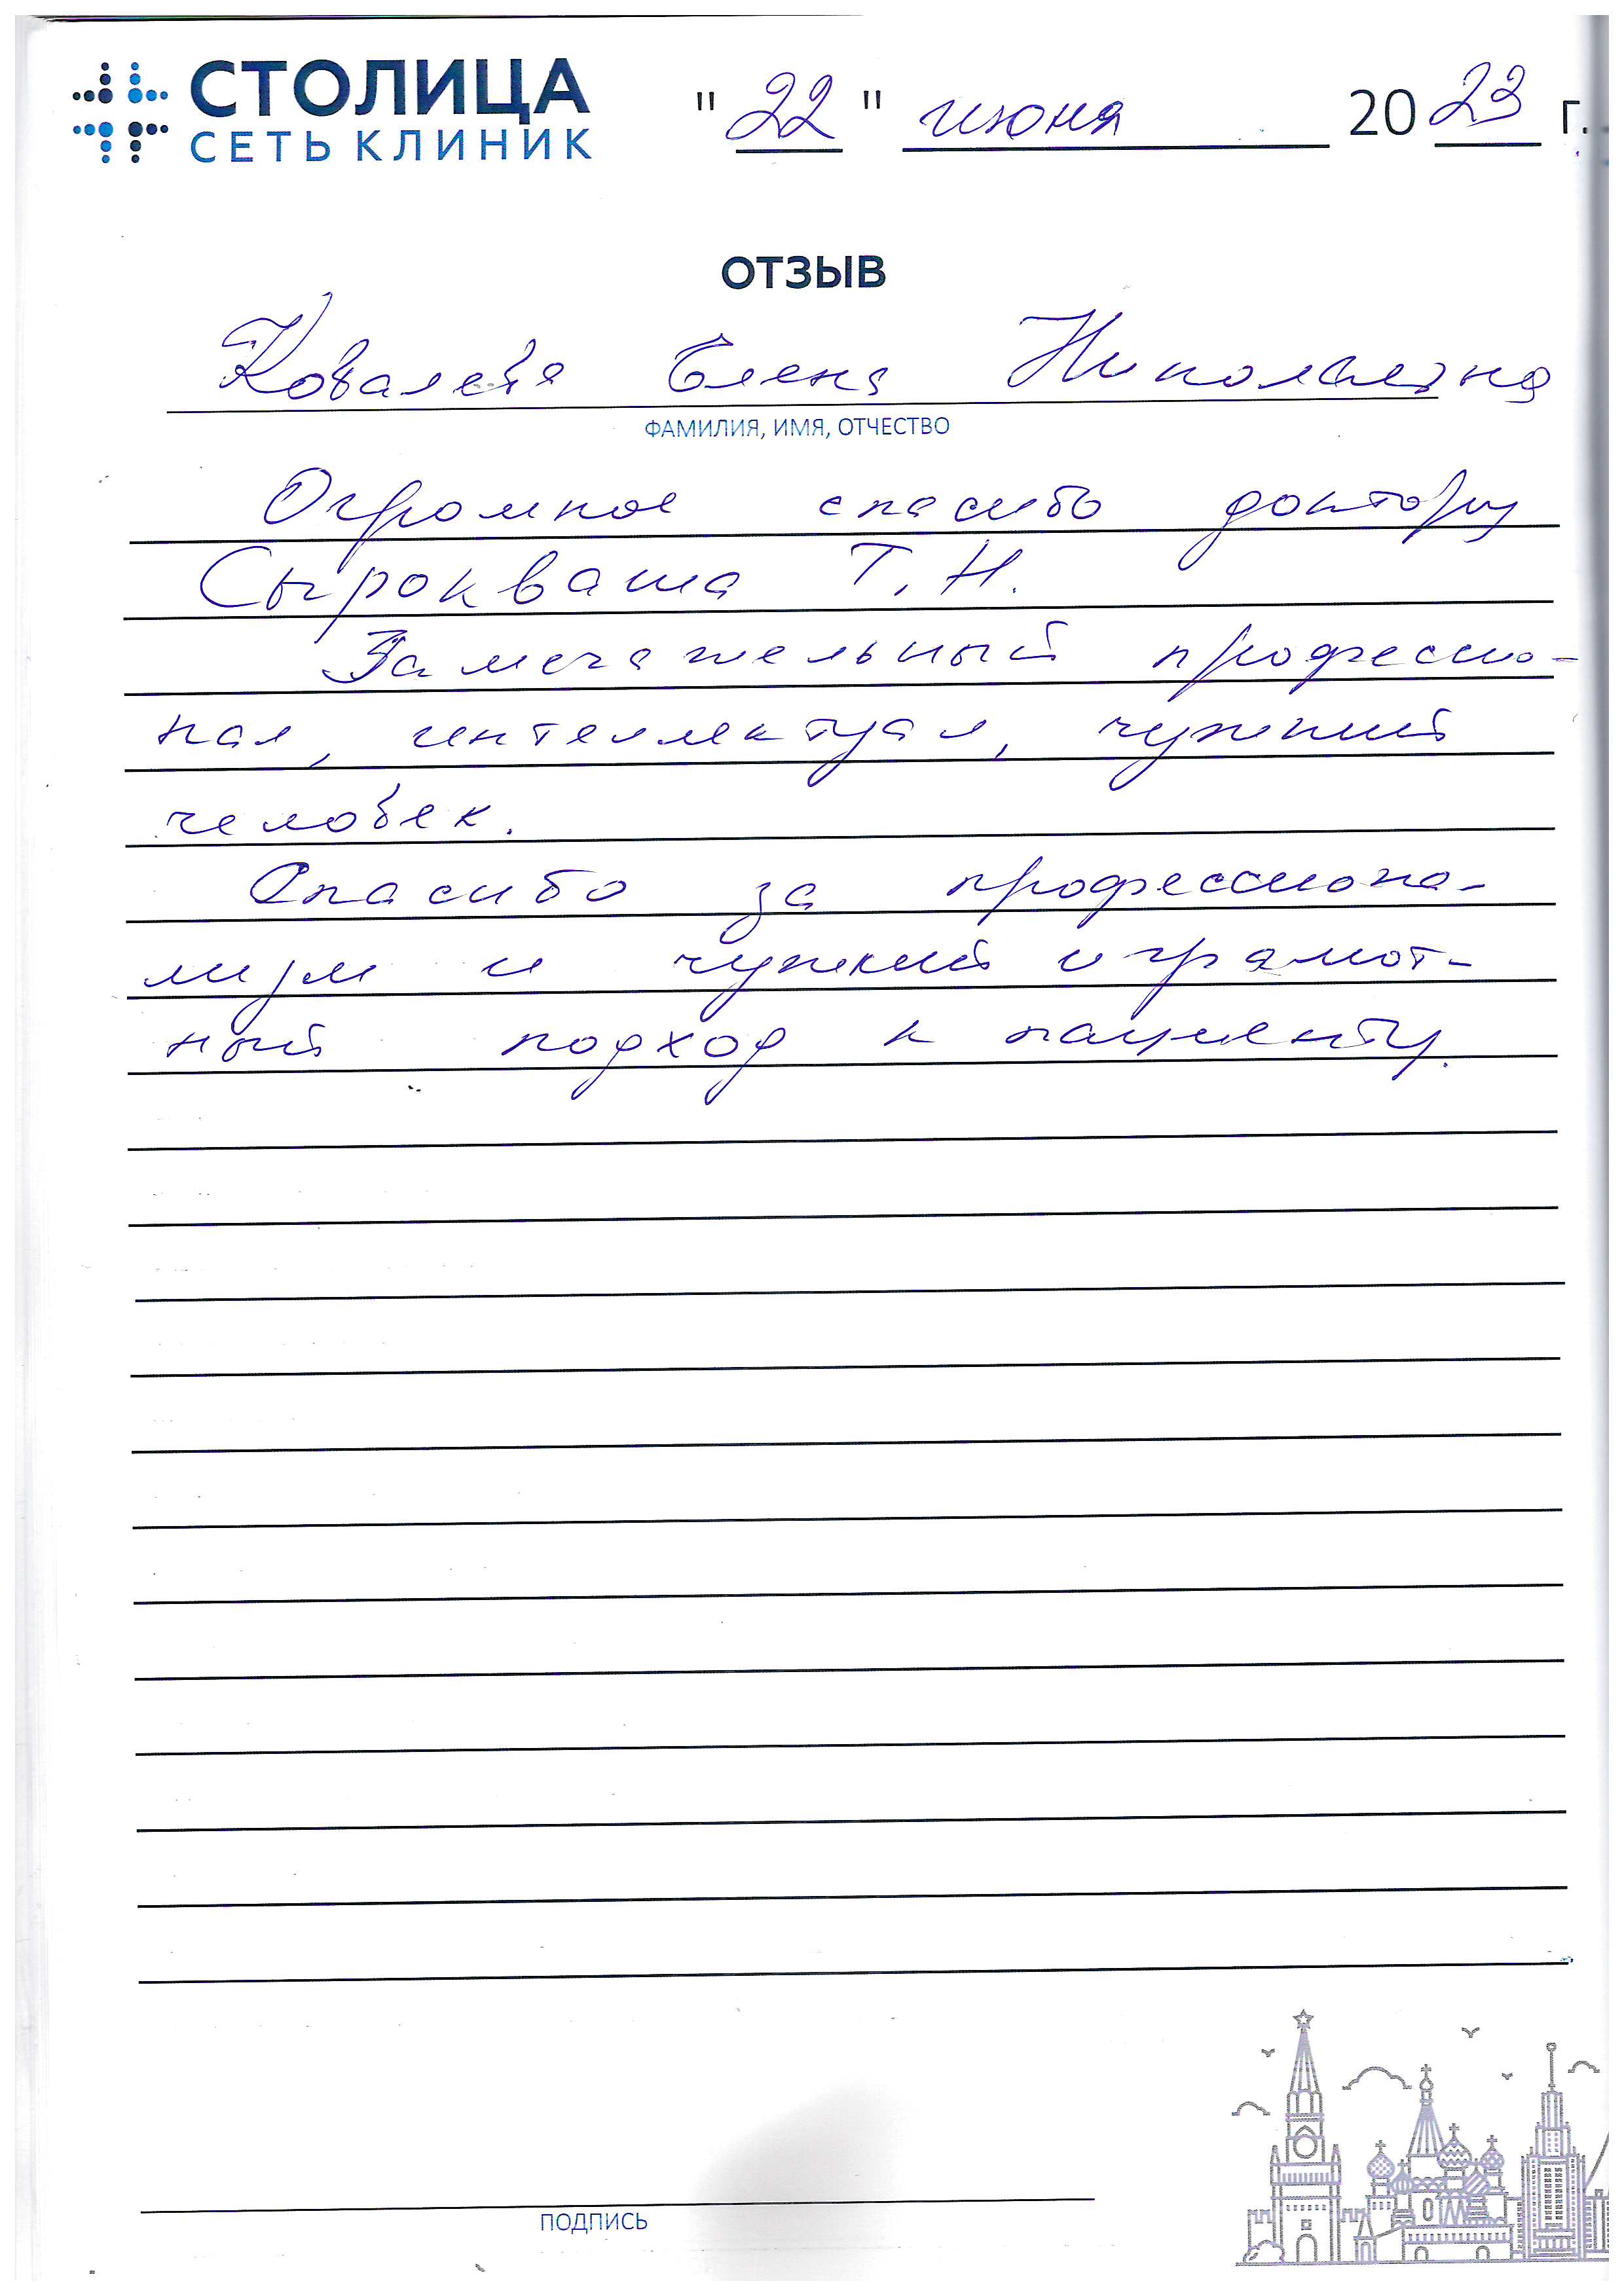 СТОЛИЦА
СЕТЬ КЛИНИК
"22" июня 2023 г.
ОТЗЫВ
Ковалева Елена Николаевна
ФАМИЛИЯ, ИМЯ, ОТЧЕСТВО
Огромное спасибо доктору
Сырокваша Т.Н.
Замечательный профессио-
нал, интеллектуал, чуткий
человек.
Спасибо за профессиона-
лизм и чуткий и грамот-
ный подход к пациенту.
ПОДПИСЬ